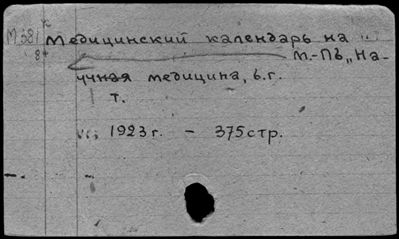 к
М 38/8
Медицинский календарь на "
м.-Пб „На-
учная медицина, б.г.
т.
1923 г. - 375 стр.